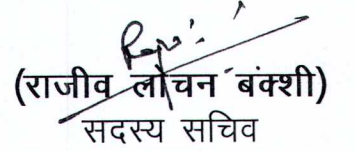 (राजीव लोचन बंक्शी)
सदस्य सचिव